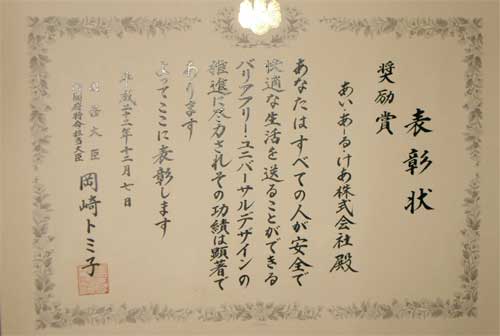 表彰状
奨励賞
あい・あーる・けあ株式会社殿
あなたはすべての人が安全で
快適な生活を送ることができる
バリアフリー・ユニバーサルデザインの
推進に尽力されその功績は顕著で
あります
よってここに表彰します
平成二十二年十二月七日
内閣府特命担当大臣
岡崎トミ子